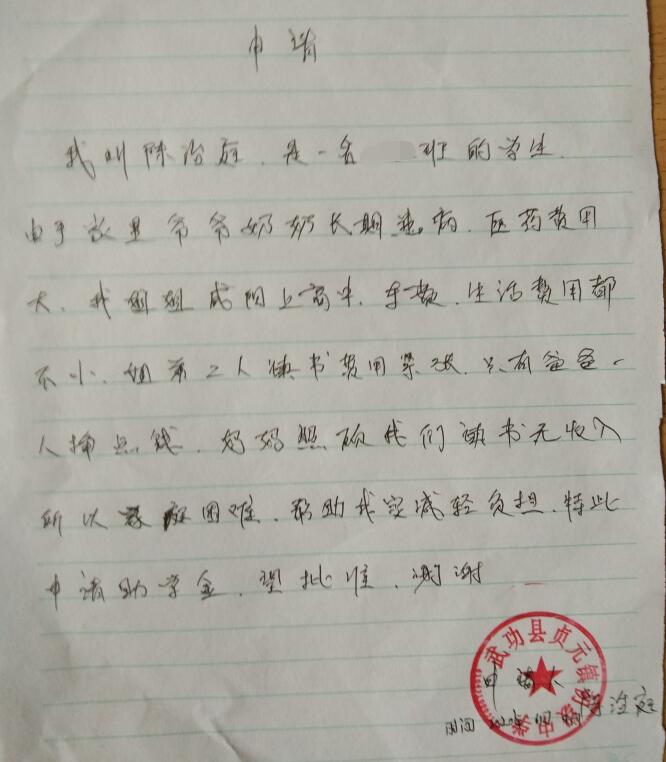 申请
我叫陈治庭，是一名 班的学生，
由于家里爷爷奶奶长期患病，医药费用
大，我姐姐咸阳上高中，学费，生活费用都
不小，姐弟二人读书费用紧张，只有爸爸一
人挣点钱，妈妈照顾我们读书无收入
所以家庭困难，帮助我家减轻负担，特此
申请助学金，望批准，谢谢
武功县贞元镇初级中学
申请人 陈治庭
时间